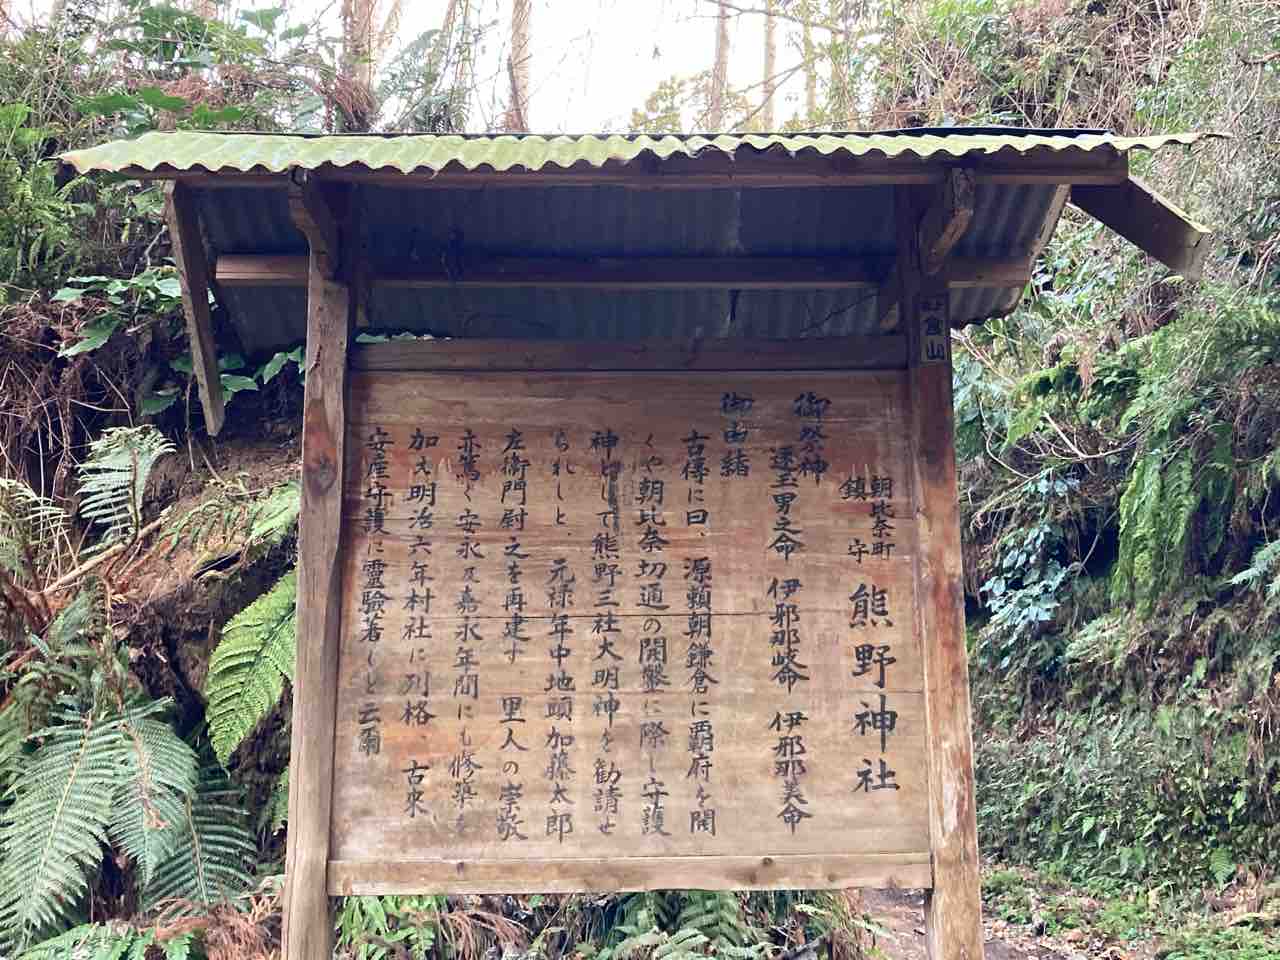 朝比奈町
鎮守
熊野神社
御祭神
速玉男之命 伊邪那岐命 伊邪那美命
御由緒
古傳に曰、源頼朝鎌倉に覇府を開
くや朝比奈切通の開鑿に際し守護
神として熊野三社大明神を勧請せ
られしと、元禄年中地頭加藤太郎
左衛門尉之を再建す 里人の崇敬
亦篤く安永及嘉永年間にも修築を
加え明治六年村社に列格、古来
安産守護に霊験著しと云爾
倉山